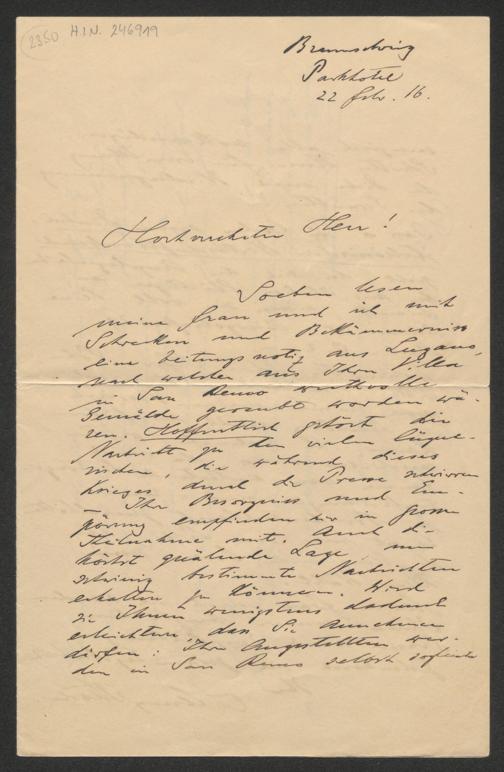 2350 H.I.N. 246919
Braunschweig
Parkhotel
22 febr. 16.
Hochverehrter Herr!
Soeben lesen
meine Frau und ich mit
Schrecken und Bekümmerniss
eine Zeitungsnotiz aus Lugano,
nach welcher aus Ihrer Villa
in San Remo werthvolle
Gemälde geraubt worden wä-
ren. Hoffentlich gehört die
Nachricht zu den vielen lügne-
rischen, die während dieses
Krieges durch die Presse schwirren
- Ihre Besorgniss und Em-
pörung empfinden wir in grosser
Theilnahme mit. Auch di
höchst quälende Lage, nur
schwierig bestimmte Nachrichten
erhalten zu können. Wird
sie Ihnen wenigstens dadurch
erleichtert, dass Sie annehmen
dürfen: Ihre Angestellten wer-
den in San Remo selbst